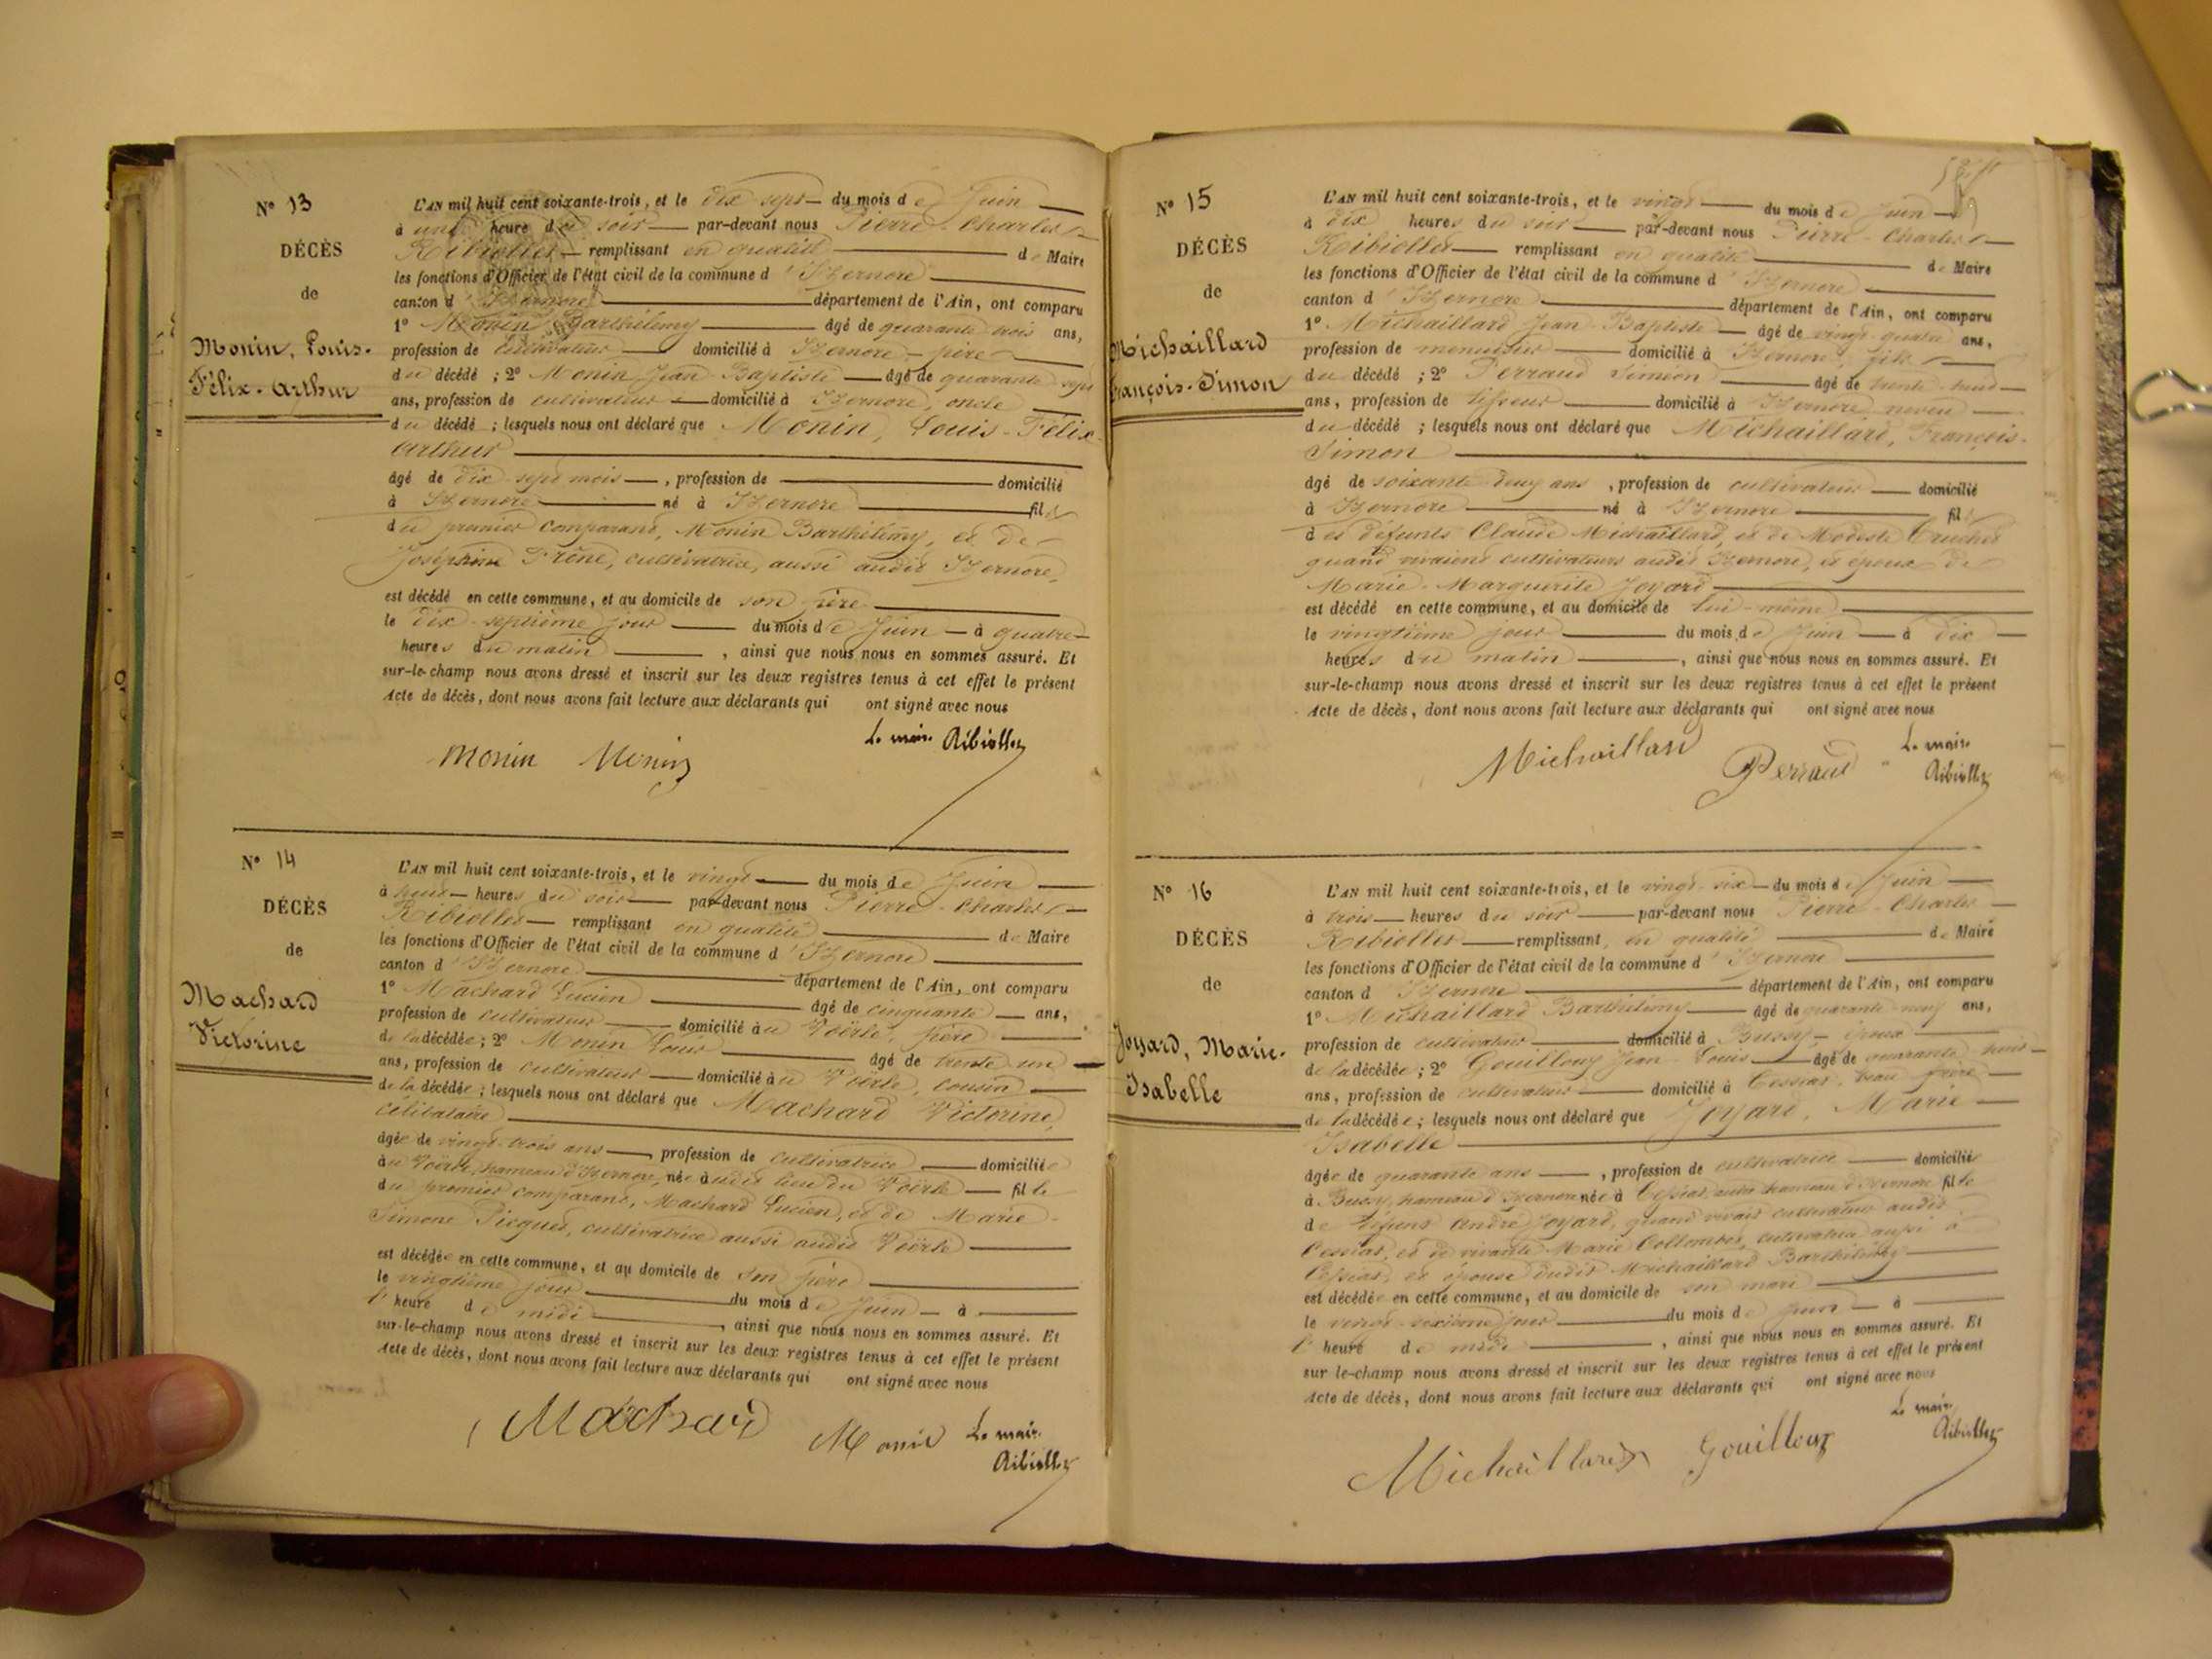 N° 13
DÉCÈS
de
Monin, Louis-
Félix-Arthur
L'AN mil huit cent soixante-trois, et le dix sept du mois de Juin
à une heure du soir par-devant nous Pierre-Charles
Ribiollet remplissant en qualité de Maire
les fonctions d'Officier de l'état civil de la commune d'Izernore
canton d'Izernore département de l'Ain, ont comparu
1° Monin Barthélemy âgé de quarante trois ans,
profession de cultivateur domicilié à Izernore, père
du décédé ; 2° Monin Jean-Baptiste âgé de quarante sept
ans, profession de cultivateur domicilié à Izernore, oncle
du décédé ; lesquels nous ont déclaré que Monin, Louis-Félix-
Arthur
âgé de dix-sept mois, profession de domicilié
à Izernore né à Izernore fils
du premier comparant, Monin Barthélemy, et de
Joséphine Frêne, cultivatrice, aussi audit Izernore,
est décédé en cette commune, et au domicile de son père
le dix-septième jour du mois de Juin à quatre
heures du matin, ainsi que nous nous en sommes assuré. Et
sur-le-champ nous avons dressé et inscrit sur les deux registres tenus à cet effet le présent
Acte de décès, dont nous avons fait lecture aux déclarants qui ont signé avec nous
Le maire
Ribiollet
Monin Monin
N° 14
DÉCÈS
de
Machard
Victorine
L'AN mil huit cent soixante-trois, et le vingt du mois de Juin
à heures du soir par-devant nous Pierre-Charles
Ribiollet remplissant en qualité de Maire
les fonctions d'Officier de l'état civil de la commune d'Izernore
canton d'Izernore département de l'Ain, ont comparu
1° Machard Lucien âgé de cinquante ans,
profession de cultivateur domicilié au Voërle, père
de la décédée ; 2° Monin Louis âgé de trente un
ans, profession de cultivateur domicilié au Voërle, cousin
de la décédée ; lesquels nous ont déclaré que Machard Victorine,
célibataire
âgée de vingt-trois ans, profession de cultivatrice domiciliée
au Voërle, hameau d'Izernore, née audit lieu du Voërle fille
du premier comparant, Machard Lucien, et de Marie-
Simone Picquet, cultivatrice aussi audit Voërle
est décédée en cette commune, et au domicile de son père
le vingtième jour du mois de Juin à
l'heure de midi, ainsi que nous nous en sommes assuré. Et
sur-le-champ nous avons dressé et inscrit sur les deux registres tenus à cet effet le présent
Acte de décès, dont nous avons fait lecture aux déclarants qui ont signé avec nous
Machard Monin Le maire
Ribiollet
N° 15
DÉCÈS
de
Michaillard
François-Simon
L'AN mil huit cent soixante-trois, et le vingt du mois de Juin
à dix heures du soir par-devant nous Pierre-Charles
Ribiollet remplissant en qualité de Maire
les fonctions d'Officier de l'état civil de la commune d'Izernore
canton d'Izernore département de l'Ain, ont comparu
1° Michaillard Jean-Baptiste âgé de vingt-quatre ans,
profession de menuisier domicilié à Izernore, fils
du décédé ; 2° Perraud Siméon âgé de trente-huit
ans, profession de tisseur domicilié à Izernore, neveu
du décédé ; lesquels nous ont déclaré que Michaillard, François-
Simon
âgé de soixante-deux ans, profession de cultivateur domicilié
à Izernore né à Izernore fils
des défunts Claude Michaillard, et de Modeste
quand vivaient cultivateurs audit Izernore, et époux de
Marie-Marguerite Joyard
est décédé en cette commune, et au domicile de lui-même
le vingtième jour du mois de Juin à dix
heures du matin, ainsi que nous nous en sommes assuré. Et
sur-le-champ nous avons dressé et inscrit sur les deux registres tenus à cet effet le présent
Acte de décès, dont nous avons fait lecture aux déclarants qui ont signé avec nous
Michaillard Perraud Le maire
Ribiollet
N° 16
DÉCÈS
de
Joyard, Marie-
Isabelle
L'AN mil huit cent soixante-trois, et le vingt-six du mois de Juin
à trois heures du soir par-devant nous Pierre-Charles
Ribiollet remplissant, en qualité de Maire
les fonctions d'Officier de l'état civil de la commune d'Izernore
canton d'Izernore département de l'Ain, ont comparu
1° Michaillard Barthélemy âgé de quarante-neuf ans,
profession de cultivateur domicilié à Bussy, époux
de la décédée ; 2° Gouilloux Jean-Louis âgé de quarante-huit
ans, profession de cultivateur domicilié à Cessiat, beau frère
de la décédée ; lesquels nous ont déclaré que Joyard, Marie
Isabelle
âgée de quarante ans, profession de cultivatrice domiciliée
à Bussy, hameau d'Izernore née à Cessiat, autre hameau d'Izernore fille
de défunt André Joyard, quand vivait cultivateur audit
Cessiat, et de vivante Marie Collomber, cultivatrice aussi à
Cessiat, et épouse dudit Michaillard Barthélemy
est décédée en cette commune, et au domicile de son mari
le vingt-sixième jour du mois de Juin à
l'heure de midi, ainsi que nous nous en sommes assuré. Et
sur le-champ nous avons dressé et inscrit sur les deux registres tenus à cet effet le présent
Acte de décès, dont nous avons fait lecture aux déclarants qui ont signé avec nous
Michaillard Gouilloux Le maire
Ribiollet